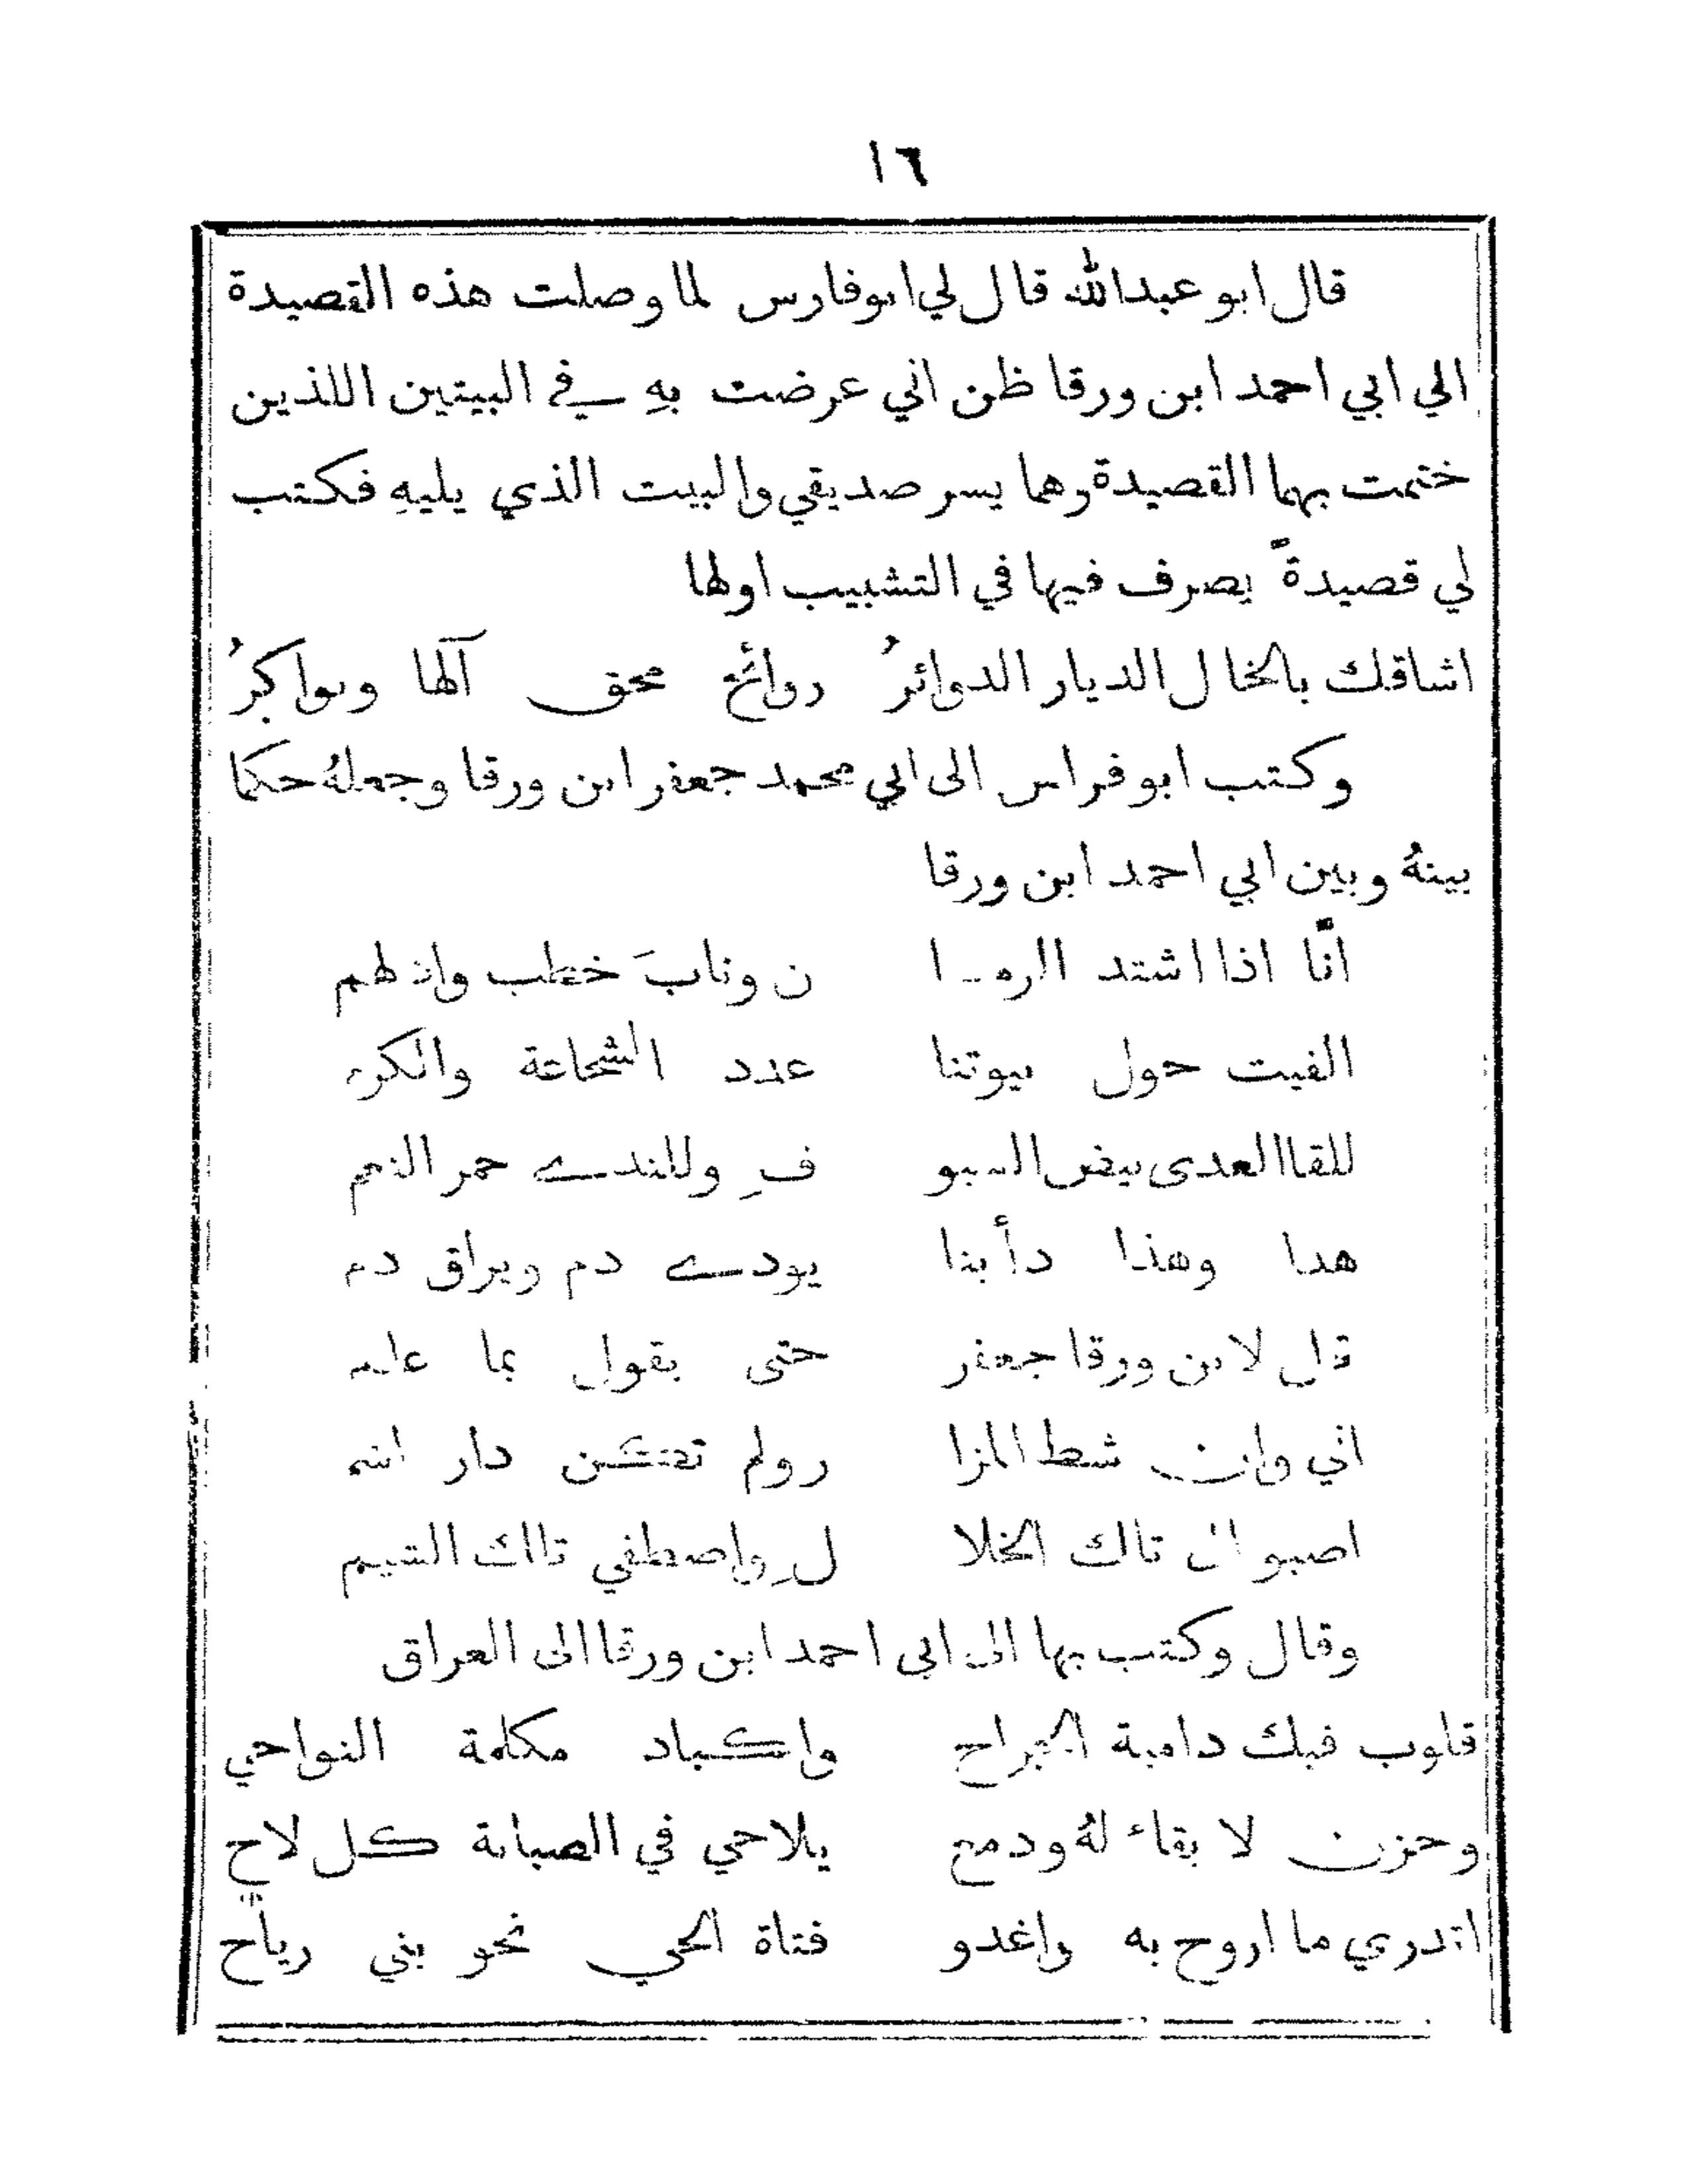 ١٦
قال ابو عبدالله قال لي ابوفارس لما وصلت هذه القصيدة
الي ابي احمد ابن ورقا ظن اني عرضت بهِ في البيتين اللذين
ختمت بهما القصيدة وهما يسر صديقي والبيت الذي يليهِ فكتب
لي قصيدةً يصرف فيها في التشبيب اولها
اشاقك بالخال الديار الدوائرُ روائح محق آلها وبواكرُ
وكتب ابو فراس الى ابي محمد جعفر ابن ورقا وجعلهُ حكمًا
بينهُ وبين ابي احمد ابن ورقا
انَّا اذا اشتد الزمـا ن ونابَ خطب وادلهم
الفيت حول بيوتنا عدد الشجاعة والكرم
للقا العدى بيض السيو فِ وللندے حمر النعم
هذا وهذا دأبنا يودے دم ويراق دم
قل لابن ورقا جعفر حتى يقول بما علم
اني وان شط المزا ر ولم تكن دار امم
اصبو الى تلك الخلا لِ واصطفي تلك الشيم
وقال وكتب بها الى ابي احمد ابن ورقا الى العراق
قلوب فيك دامية الجراح واكباد مكلمة النواحي
وحزن لا بقاء لهُ ودمع يلاحي في الصبابة كل لاح
اتدري ما اروح به واغدو فتاة الحي نحو بني رياح